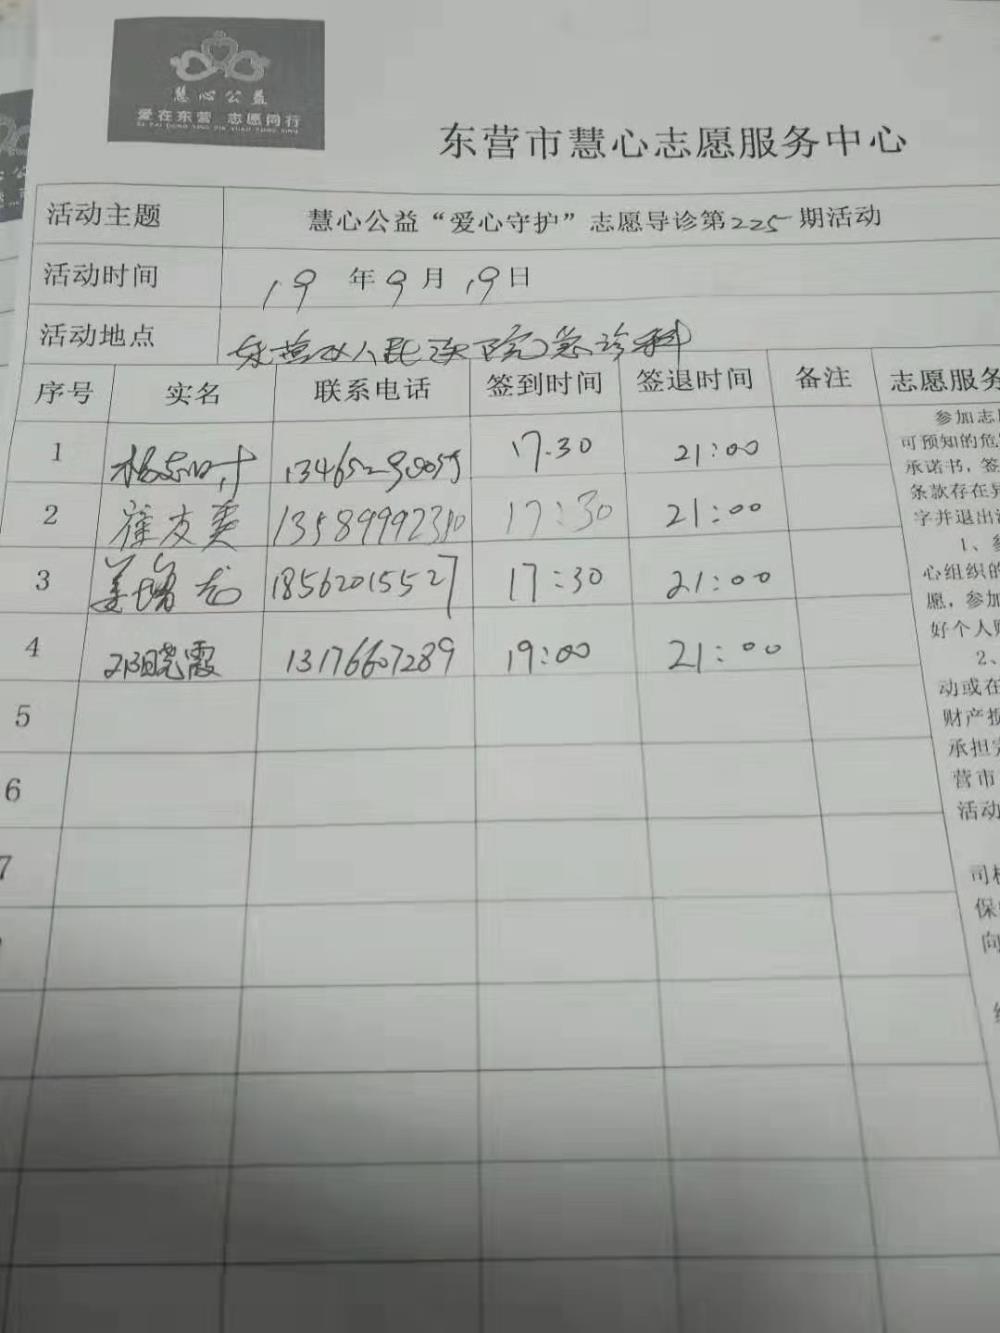 慧心公益
爱在东营 志愿同行
东营市慧心志愿服务中心
活动主题 慧心公益“爱心守护”志愿导诊第225期活动
活动时间 19年9月19日
活动地点 东营市人民医院急诊科
序号 实名 联系电话 签到时间 签退时间 备注 志愿服务
1 17.30 21:00
2 崔友英 13589992310 17:30 21:00
3 姜增龙 18562015527 17:30 21:00
4 晓霞 13176607289 19:00 21:00
5
6
7
参加志
可预知的危
承诺书，签
条款存在异
字并退出
1、
心组织的
愿，参加
好个人
2、
动或在
财产损
承担
营市
活动
司
保
向